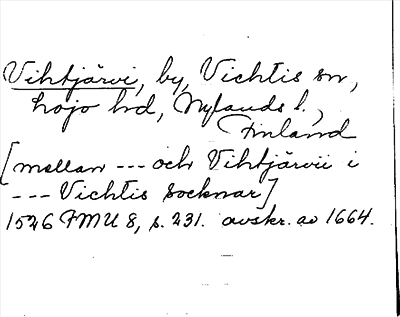 Vihtjärvi, by, Vichtis sn,
Lojo hd, Nylands l.,
Finland
[mellan --- och Vihtjärvii i
--- Vichtis socknar]
1526 FMU 8, s. 231. avskr. av 1664.